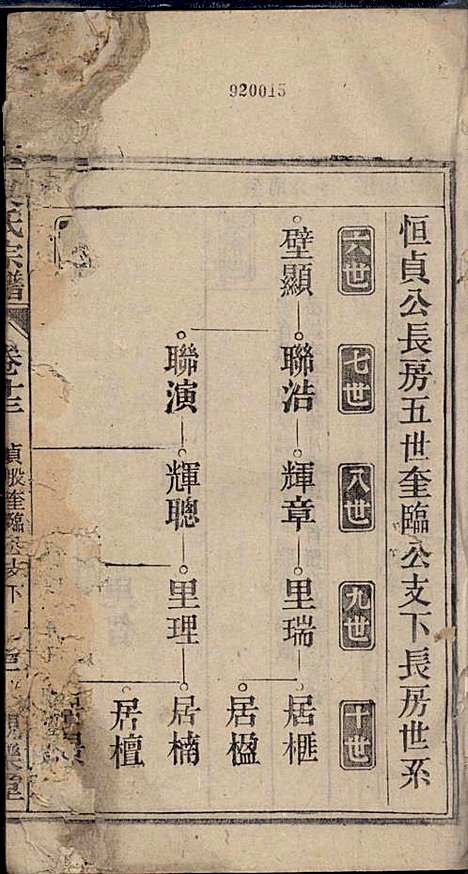 920015
恒貞公長房五世奎臨公支下長房世系
六世
七世
八世
九世
十世
壁顯
聯浩
輝章
里瑞
居榧
居楹
聯演
輝聰
里理
居楠
居檀
氏宗譜
卷十三
貞股奎臨公支下